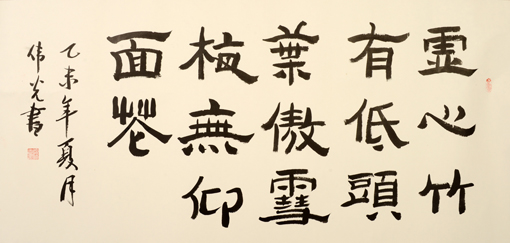 虚心竹
有低頭
葉傲雪
梅無仰
面花
乙未年夏月
伟光書